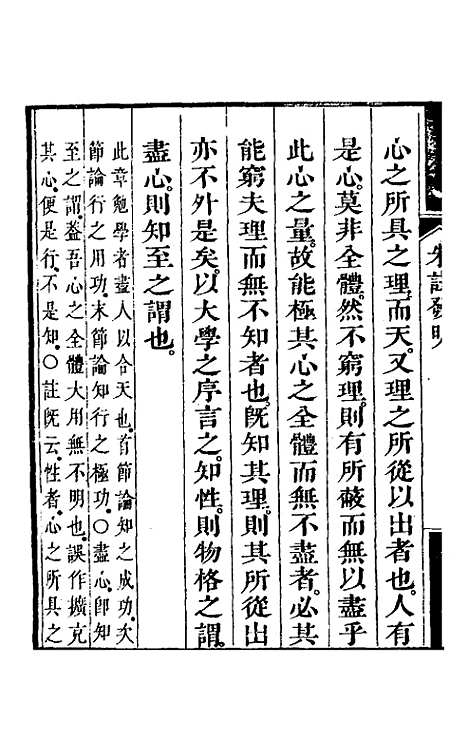 朱註發明
心之所具之理而天又理之所從以出者也人有
是心莫非全體然不窮理則有所蔽而無以盡乎
此心之量故能極其心之全體而無不盡者必其
能窮夫理而無不知者也旣知其理則其所從出
亦不外是矣以大學之序言之知性則物格之謂
盡心則知至之謂也。
此章勉學者盡人以合天也。首節論知之成功。次
節論行之用功。末節論知行之極功。〇盡心卽知
至之謂。葢吾心之全體大用無不明也。誤作擴充
其心。便是行。不是知。〇註旣云。性者。心之所具之